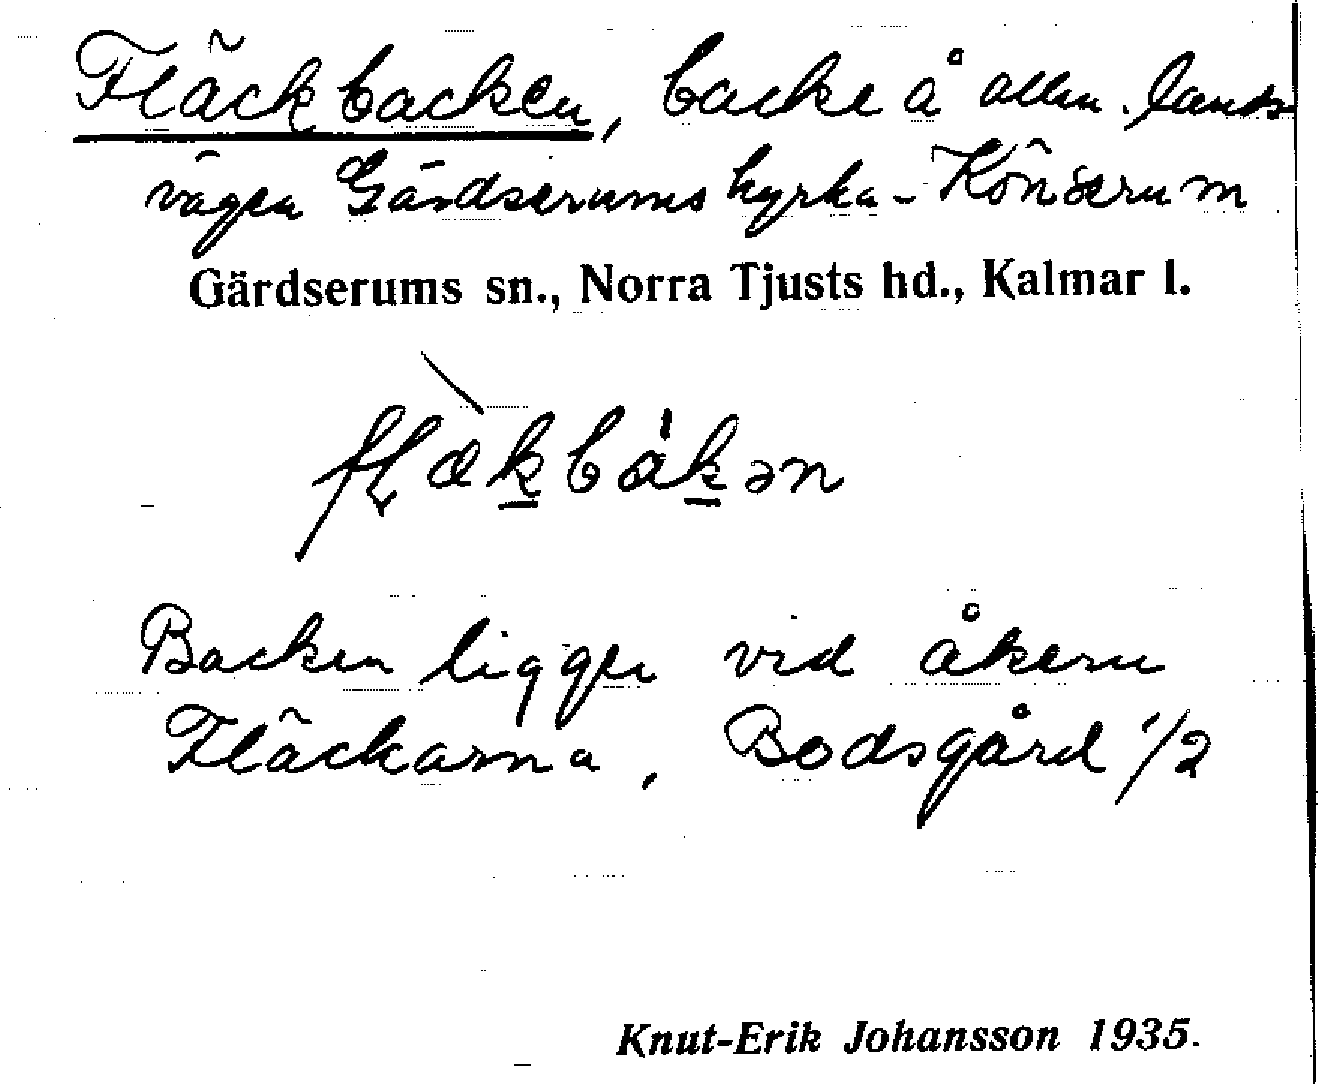 Fläckbacken, backe å allm. lands
vägen Gärdserums kyrka - Könserum
Gärdserums sn., Norra Tjusts hd., Kalmar l.
flæk̲bàk̲ən
Backen ligger vid åkern
Fläckarna, Bodsgård 1/2
Knut-Erik Johansson 1935.